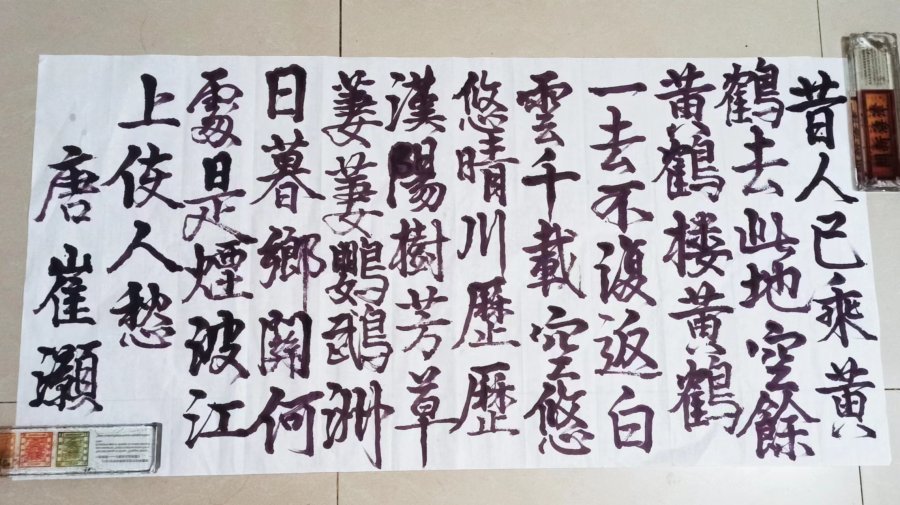 昔人已乘黄
鶴去此地空餘
黄鶴楼黄鶴
一去不復返白
雲千載空悠
悠晴川歷歷
漢陽樹芳草
萋萋鸚鵡洲
日暮鄉關何
處是煙波江
上使人愁
唐崔灝